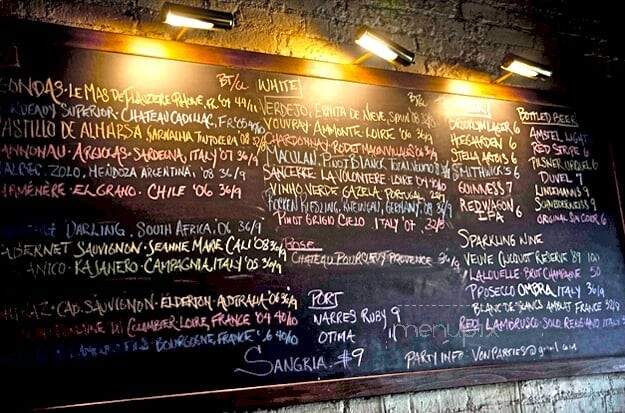 BT/GL
LE MAS DE FLAUZIERE RHONE, FR '07 44/11
SUPERIOR CHATEAU CADILLAC, FR '05
CASTILLO DE ALMANSA GARNACHA TINTORERA '08
ARGIOLAS SARDEGNA, ITALY '07 36/9
ZOLO, MENDOZA ARGENTINA, '08 36/9
EL GRANO CHILE '06 36/9
DARLING, SOUTH AFRICA, '06 36/9
CABERNET SAUVIGNON JEANNE MARIE CALI '08 36/9
KAJANERO CAMPAGNIA, ITALY '05 36/9
CAB. SAUVIGNON ELDERTON AUSTRALIA '06 36/9
DU COLOMBIER LOIRE, FRANCE '04 40/10
BOURGOGNE, FRANCE '06 40/10
WHITE BT/GL
VERDEJO, ERMITA DE NIEVE, SPAIN '08
VOUVRAY AMMONITE LOIRE '06 36/9
CHARDONNAY RODET
MACULAN, PINOT BLANK
SANCERRE LA VOLONTERE LOIRE '09 44/11
VINHO VERDE GAZELA, PORTUGAL
RIESLING, RHEINGAU, GERMANY, '08
PINOT GRIGIO CIELO ITALY '07
Rose
CHATEAU PROVENCE
PORT
NARRES RUBY 9
OTIMA 11
SANGRIA #9
BROOKLYN LAGER 6
HOEGAARDEN 6
STELLA ARTOIS 6
SMITHWICKS 6
GUINNESS 7
RED WAGON IPA 6
BOTTLED BEER
AMSTEL LIGHT
RED STRIPE 6
PILSNER URQUEL 6
DUVEL 7
LINDEMANNS 9
ORIGINAL SIN CIDER 6
SPARKLING WINE
VEUVE CLICQUOT RESERVE '89 100
LALOUELLE BRUT CHAMPAGNE 50
PROSECCO OMBRA, ITALY 36/9
BLANC DE BLANCS AMBLAT FRANCE 32/9
RED LAMBRUSCO SOLO REGGIANO ITALY
PARTY INFO VONPARTIES@gmail.com
menupix